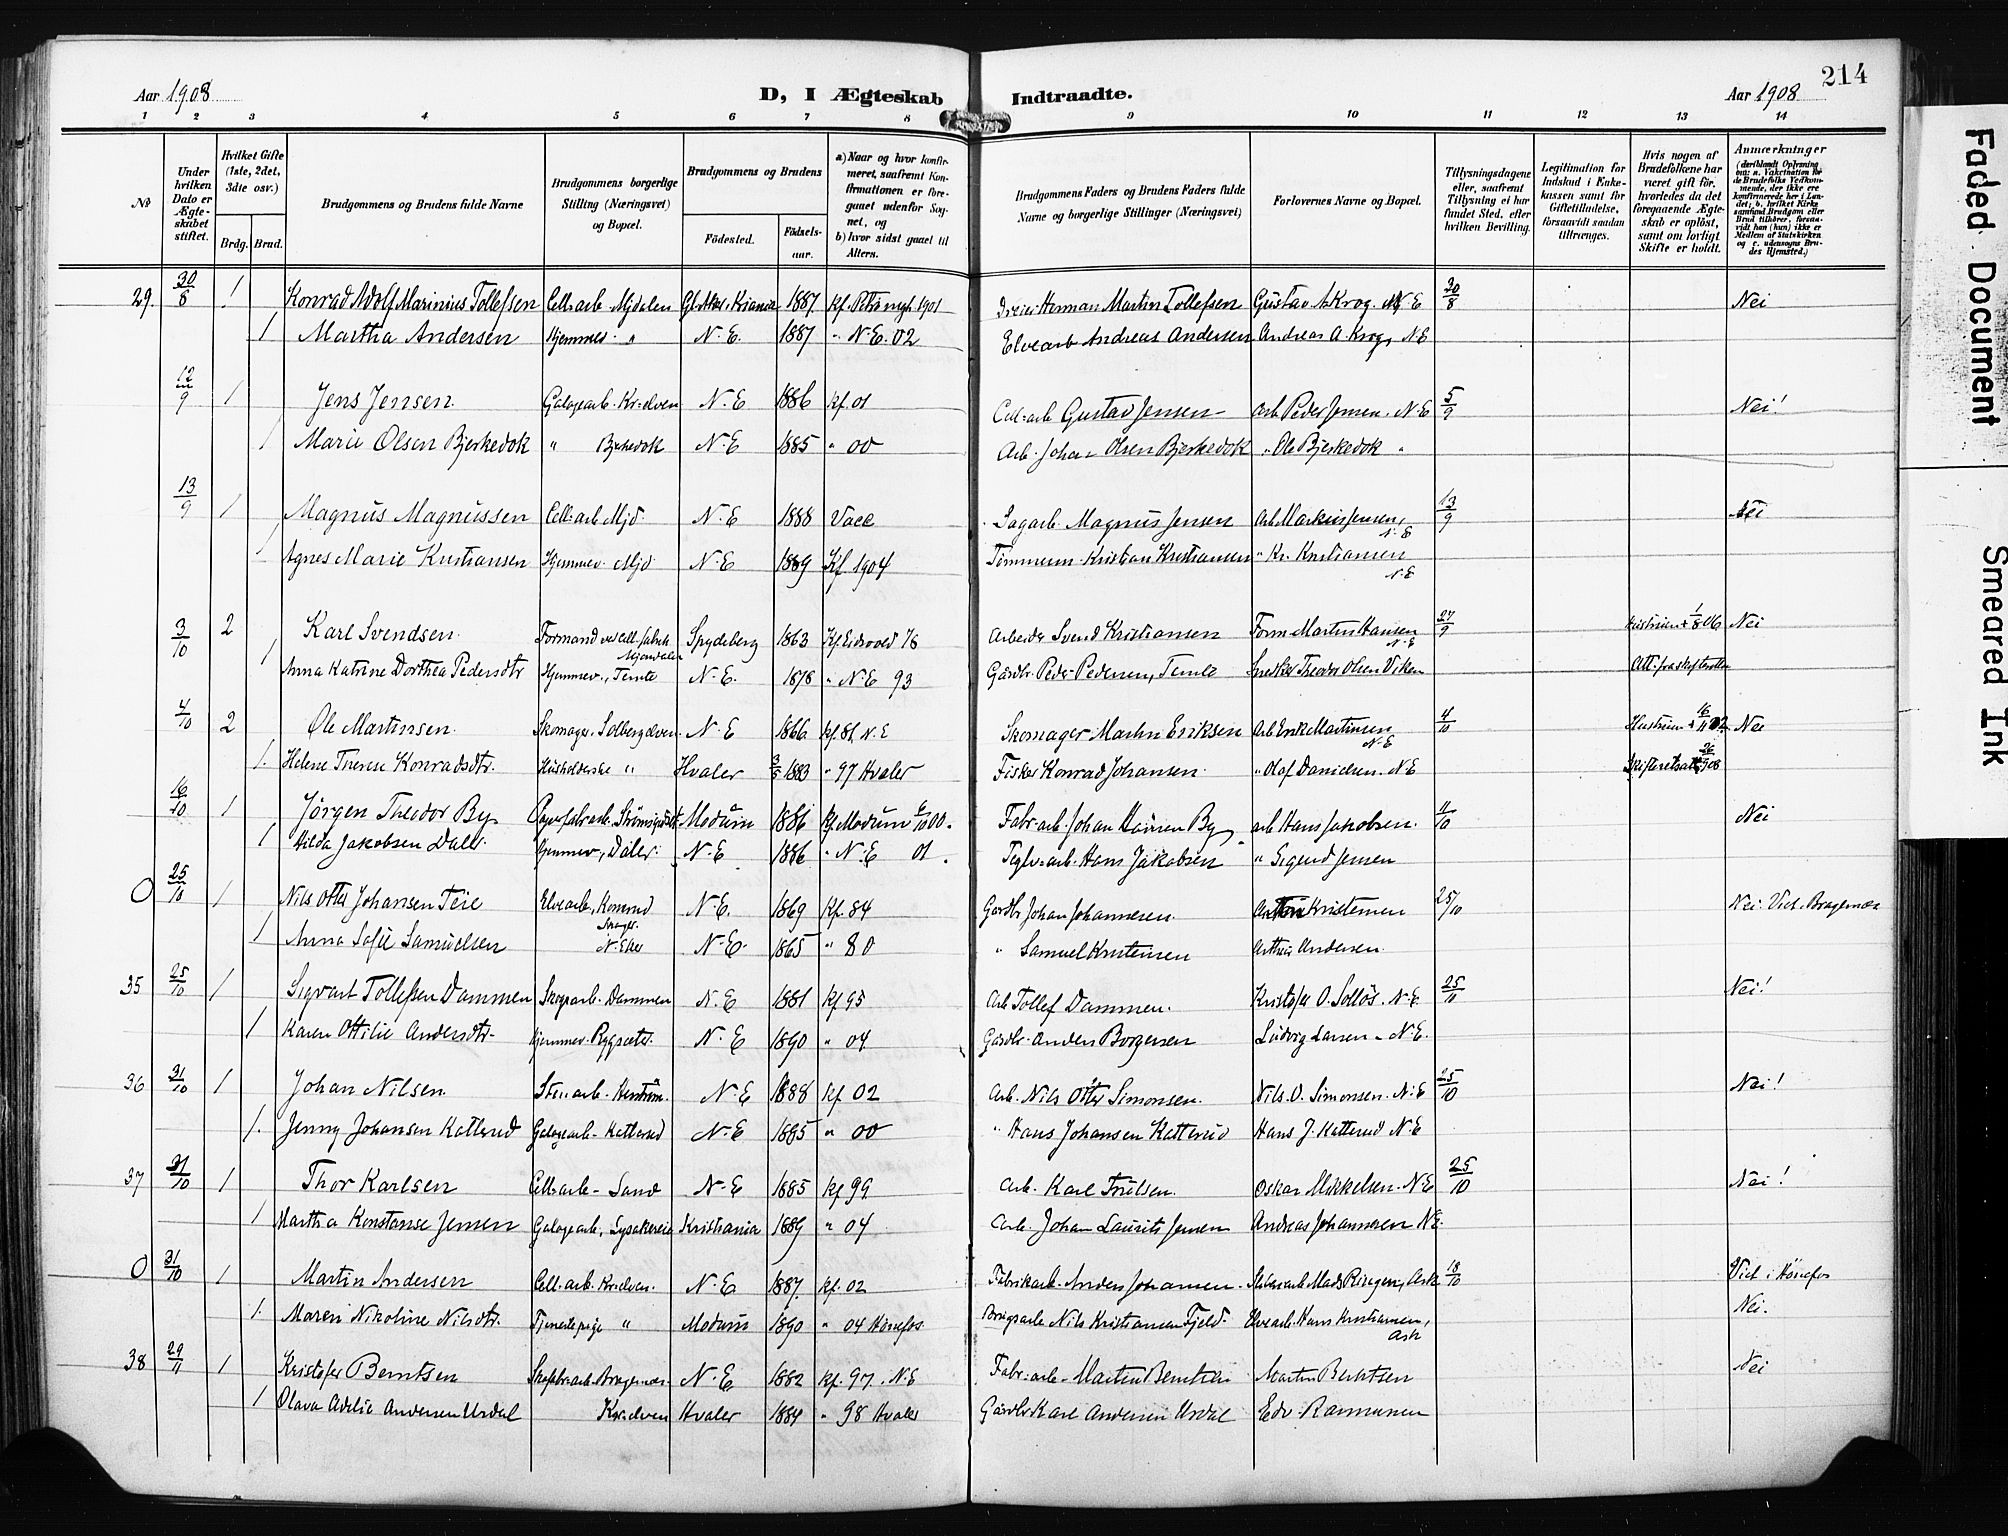 Aar 1908 D, I Ægteskab Indtraadte. Aar 1908 214
1 2 3 4 5 6 7 8 9 10 11 12 13 14
Nº
Under hvilken Dato er Ægteskabet stiftet.
Hvilket Gifte (1ste, 2det, 3die osv.)
Brdg. Brud.
Brudgommens og Brudens fulde Navne
Brudgommens borgerlige Stilling (Næringsvei) og Bopæl.
Brudgommens og Brudens
Fødested. Fødselsaar.
a) Naar og hvor konfirmeret, saafremt Konfirmationen er foregaaet udenfor Sognet, og
b) hvor sidst gaaet til Alters.
Brudgommens Faders og Brudens Faders fulde Navne og borgerlige Stillinger (Næringsvei)
Forlovernes Navne og Bopæl.
Tillysningsdagene eller, saafremt Tillysning ei har fundet Sted, efter hvilken Bevilling.
Legitimation for Indskud i Enkekassen samt for Giftetilladelse, forsaavidt saadan tiltrænges.
Hvis nogen af Brudefolkene har været gift før, hvorledes da det foregaaende Ægteskab er opløst, samt om lovligt Skifte er holdt.
Anmærkninger (deriblandt Oplysning om: a. Vakcination for de Brudefolks Vedkommende, der ikke ere konfirmerede her i Landet; b. hvilket Kirkesamfund Brudgom eller Brud tilhører, forsaavidt han (hun) ikke er Medlem af Statskirken og c. udensogns Brudes Hjemsted.)
29 30/8 1 Konrad Adolf Marinius Tollefsen Cell: arb Mjdalen Gl. Aker. Kr.ania 1887 Kf. 1901 Herman Martin Tollefsen Gustav A Krog. N E 20/8 Nei
1 Martha Andersen Hjemmev. " N. E. 1887 " N. E. 02 Elvearb Andreas Andersen Andreas A. Krog, N E
12/9 1 Jens Jensen Galagearb. Kr:elven N. E 1886 kf. 01 Cell-arb Gustav Jensen Arb Peder Jensen. N. E 5/9 Nei!
1 Marie Olsen Bjerkedok " Bjerkedok N. E 1885 " 00 Arb. Johan Olsen Bjerkedok " Ole Bjerkedok "
13/9 1 Magnus Magnussen Cell: arb Mjd N. E 1888 Vacc Sagarb. Magnus Jensen Arb Markus Jensen, N. E 13/9 Nei
1 Agnes Marie Kristiansen Hjemmev. Mjd N. E 1889 Kf 1904 Tømmerm. Kristian Kristiansen " Kr. Kristiansen N. E
3/10 2 Karl Svendsen Formand ved cell. fabrik Mjøndalen Spydeberg 1863 Kf. Eidsvold 78 Arbeider Svend Kristiansen Form. Martin Hansen N. E 27/9 Hustruen + 1/8 06 Nei
1 Anna Katrine Dorthea Pedersdtr Hjemmev., Temte N. E. 1878 " N E 93 Gårdbr. Peder Pedersen, Temte Snedker Theodor Olsen Viken Att. fra skifteretten
4/10 2 Ole Martinsen Skomager. Solbergelven. N. E 1866 kf. 81 N. E Skomager Martin Eriksen Arb Erik Martinsen N. E 4/10 Hustruen + 16/11 02 Nei
1 Helene Therese Konradsdtr. Husholderske " Hvaler 3/5 1883 " 97 Hvaler Fisker Konrad Johansen " Olaf Danielsen. N. E Skifteretsatt. 26/9 08
16/10 1 Jørgen Theodor By Papirfabr arb. Strømsgodset Modum 1886 Kf Modum 6/10 00 Fabr-arb. Johan Hansen By arb Hans Jakobsen. 11/10 Nei
1 Hilda Jakobsen Daler. Hjemmev, Daler. N. E 1886 " N. E 01 Teglv-arb. Hans Jakobsen " Sigurd Jensen
O 25/10 1 Nils Otter Johansen Teie Elvearb, Komrud N. E. 1869 Kf. 84 Gårdbr Johan Johannesen Anton Kristensen 25/10 Nei. Viet. Bragernæs
1 Anna Sofie Samuelsen N. Eker N. E. 1865 " 80 " Samuel Kristensen Anthur Andersen
35 25/10 1 Sigvart Tollefsen Dammen Skogarb. Dammen N. E 1881 kf 95 Arb Tollef Dammen. Kristofer O. Solløs. N. E. 25/10 Nei!
1 Karen Ottilie Andersdtr. Hjemmev. Rygsæter. N. E 1890 " 04 Gårdbr. Anders Borgersen Ludvig Larsen. N. E.
36 31/10 1 Johan Nilsen Stenarb. N. E 1888 kf 02 Arb. Nils Otter Simonsen. Nils. O. Simonsen. N. E 25/10 Nei!
1 Jenny Johansen Katterud Galagearb. Katterud N. E 1885 " 00 " Hans Johansen Katterud Hans J. Katterud N E
37 31/10 1 Thor Karlsen Cell: arb. Sand N. E 1885 kf 99 Arb. Karl Trulsen. Oskar Mikkelsen. N E 25/10 Nei!
1 Martha Konstanse Jensen Galagearb., Lysakereie Kristiania 1889 " 04 Arb. Johan Laurits Jensen Andreas Johannesen N E.
O 31/10 1 Martin Andersen Cell. arb. Kr:elven. N. E 1887. kf. 02 Fabrikarb. Anders Johansen. Mads Ringen, Ask 18/10 Viet i Hønefos
1 Maren Nikoline Nilsdtr. Tjenestepige " Modum 1890 " 04 Hønefos Brugsarb Nils Kristiansen Fjeld. Elvearb. Hans Kristiansen, Ask Nei.
38 29/11 1 Kristofer Berntsen Skofabr.arb. Bragernæs. N. E 1882 kf. 97. N. E Fabr-arb. Martin Berntsen Martin Berntsen Nei
1 Olava Adelia Andersen Ursdal Kr:elven Hvaler 1884 " 98 Hvaler Gårdbr. Karl Andersen Ursdal Edv. Rasmussen
Faded Document
Smeared Ink